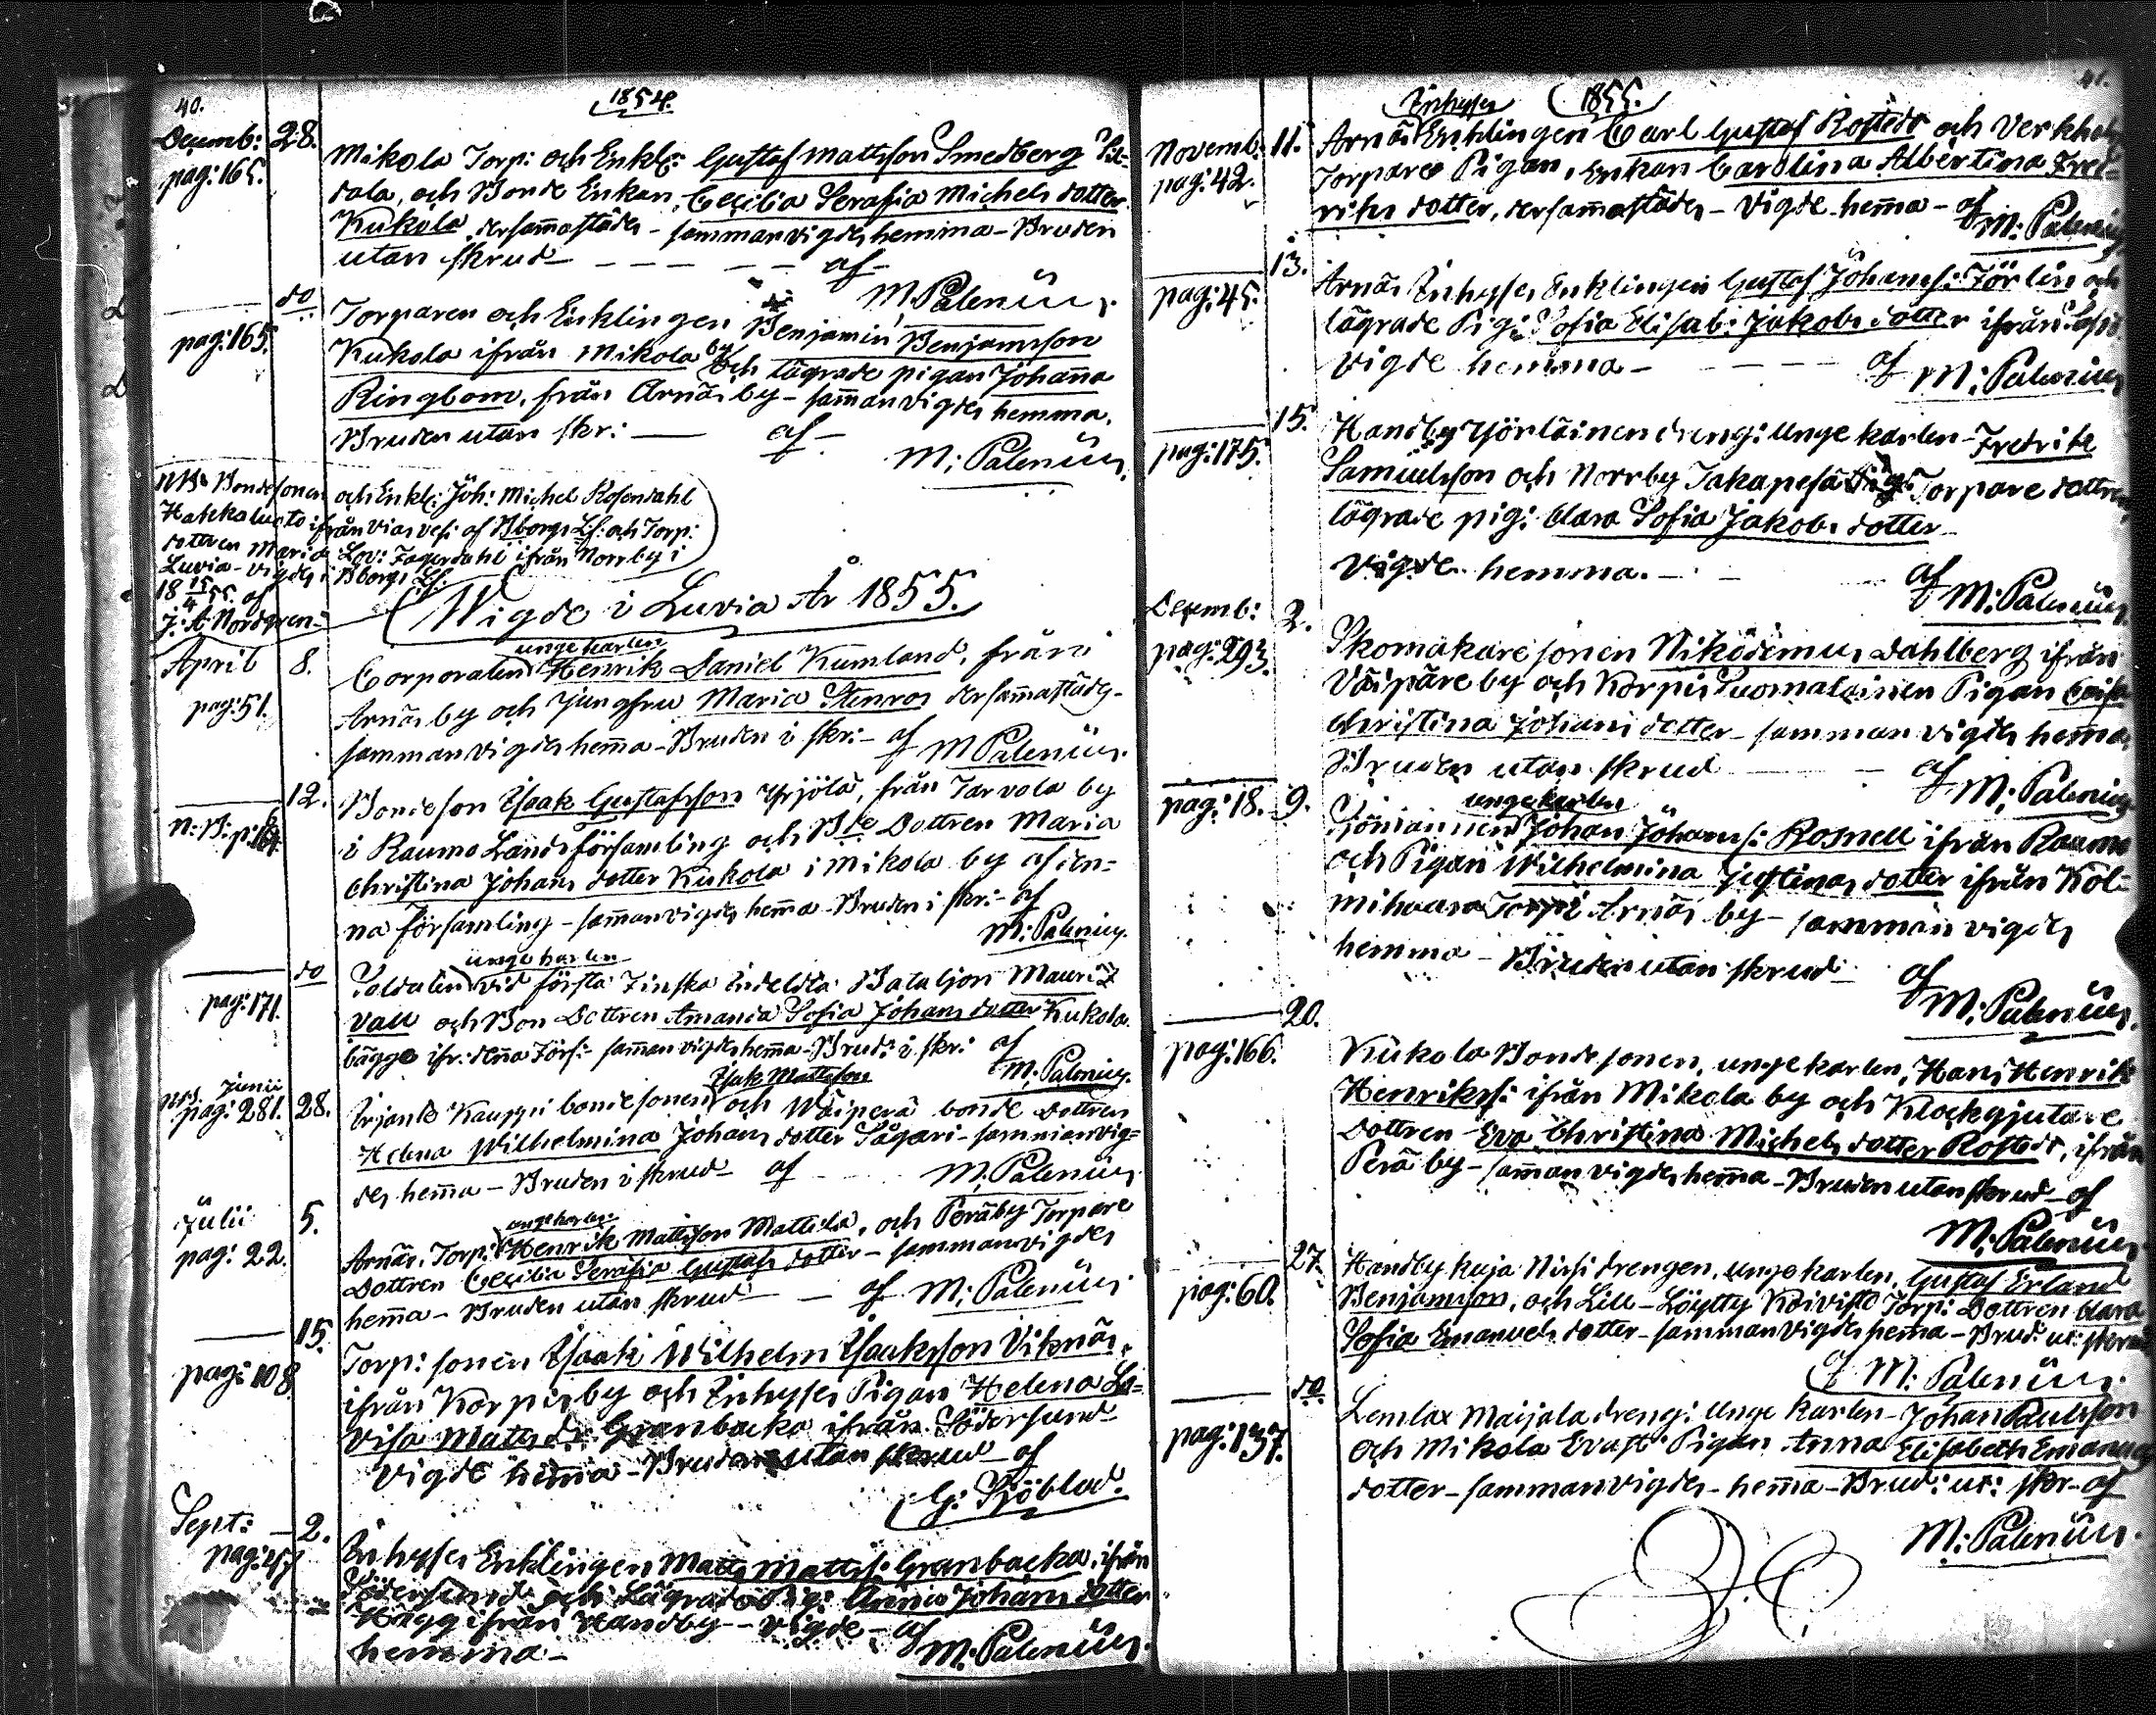 40.
1854.
Decemb: 28.
pag: 165.
Mikola Torp: och Enkl: Gustaf Mattsson Smedberg
dala, och Bonde Enkan, Cecilia Serafia Michels dotter
Kukola, dersammastädes – sammanvigdes hemma – Bruden
utan skrud – – – – – af –
M. Palenius.
do
pag: 165.
Torparen och Enklingen Benjamin Benjamsson
Kukola ifrån Mikola by och lägrade pigan Johanna
Ringbom, från Arnäs by – sammanvigdes hemma.
Bruden utan skr: – af –
M: Palenius.
NB. Bondesonen och Enkl: Joh: Michel Rosendahl
Hakkaluoto ifrån Vias ves: af Bborgs Lf: och Torp:
dottren Maria Lov: Fagerdahl ifrån Norrby i
Luvia – vigdes i Bborgs Lf:
18 15/4 55. af
J: A Nordgren –
Wigde i Luvia År 1855.
April 8.
pag: 51.
unge karlen
Corporalen Henrik Daniel Kumland, från
Arnäs by och Jungfru Maria Stenros dersammastäds –
sammanvigdes hemma – Bruden i skr: – af M Palenius.
12.
N: B: p: 164.
Bondeson Isaak Gustafsson Yrjölä, från Tarvola by
i Raumo Landsförsamling och Bde Dottren Maria
Christina Johans dotter Kukola i Mikola by af den=
na församling – sammanvigdes hemma – Bruden i skr: – af
M: Palenius.
do
pag: 171.
unge karlen
Soldaten vid första Finska Indelda Bataljon Mauritz
Vall och Bon Dottren Amanda Sofia Johans dotter Kukola.
bägge ifr: denna Förs: – sammanvigdes hemma – Brud: i skr: af
M: Palenius.
Junii
pag: 281. 28.
Isak Mattsson
Irjanto Kauppi bondesonen och Wäiperä bonde Dottren
Helena Wilhelmina Johans dotter Sågari – sammanvig=
des hemma – Bruden i skrud – af M: Palenius.
Julii 5.
pag: 22.
unge karlen
Arnäs Torp: Henrik Mattsson Mattila, och Peräby Torpare
Dottren Cecilia Serafia Gustafs dotter – sammanvigdes
hemma – Bruden utan skrud – af M: Palenius.
15.
pag: 108
Torp: sonen Isaak Wilhelm Isaksson Viknäs,
ifrån Korpis by och Inhyses Pigan Helena Lo=
visa Matts d: Granbacka ifrån Södersund
Vigde hemma – Bruden utan skrud – af
G: Sjöblad.
Sept: – 2.
pag: 157
Inhyses Enklingen Matts Matts: Granbacka, ifrån
Södersund och Lägrade Pig: Annis Johans dotter
Hägg ifrån Handby – Vigde – af
hemma – M: Palenius.
41.
1855.
Novemb: 11.
pag: 42.
Inhyses
Arnäs Enklingen Carl Gustaf Rostedt och Verkholm
Torpare Pigan, Enkan Carolina Albertina Fred=
riks dotter, dersammastädes – Vigde hemma – af
M: Palenius
13.
pag: 45.
Arnäs Inhyses Enklingen Gustaf Johans: Törlin och
lägrade Pig: Sofia Elisab: Jakobs dotter ifrån
Vigde hemma – – – – af M: Palenius
15.
pag: 175.
Handby Yörläinen dreng: Unge karlen – Fredrik
Samuelsson och Norrby Takapesä Torpare dottren,
lägrade pig: Clara Sofia Jakobs dotter –
Vigde hemma. – – af
M: Palenius
Decemb: 2.
pag: 293.
Skomakare sonen Nikodemus Dahlberg ifrån
Väipäre by och Korpis Suomalainen Pigan Caisa
Christina Johans dotter – sammanvigdes hemma
Bruden utan skrud – – af
M: Palenius
pag: 18. 9.
unge karlen
Sjömannen Johan Johans: Rosnell ifrån Raumo
och Pigan Wilhelmina Justinas dotter ifrån Kol=
mihaara Torp i Arnäs by – sammanvigdes
hemma – Bruden utan skrud – af
M: Palenius.
20.
pag: 166.
Kukola Bondesonen, unge karlen, Hans Henrik
Henrikss: ifrån Mikola by och Klockgjutare
Dottren Eva Christina Michels dotter Rostedt, ifrån
Perä by – sammanvigdes hemma – Bruden utan skrud – af
M: Palenius
27.
pag: 60.
Handby kuja Nissi drengen, unge karlen, Gustaf Erland
Benjamsson, och Lill-Löytty Koivisto Torp: Dottren Clara
Sofia Emanuels dotter – sammanvigdes hemma – Brud: ut: skrud
af M: Palenius.
do
pag: 137.
Lemlax Maijala dreng: Unge karlen – Johan Paulsson
och Mikola Evast: Pigan Anna Elisabeth Emanuels
dotter – sammanvigdes – hemma – Brud: ut: skr – af
M: Palenius.